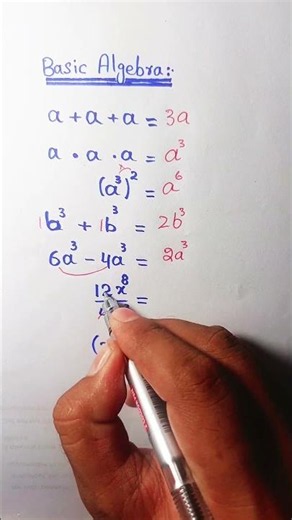 Basic Algebra:-
a + a + a = 3a
a • a • a = a³
(a³)² = a⁶
1b³ + 1b³ = 2b³
6a³ - 4a³ = 2a³
12x⁸ =
(